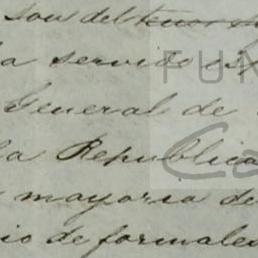 son del tenor
a servido
FUN
General de
la Republica
Ca
mayoria de
io de formales